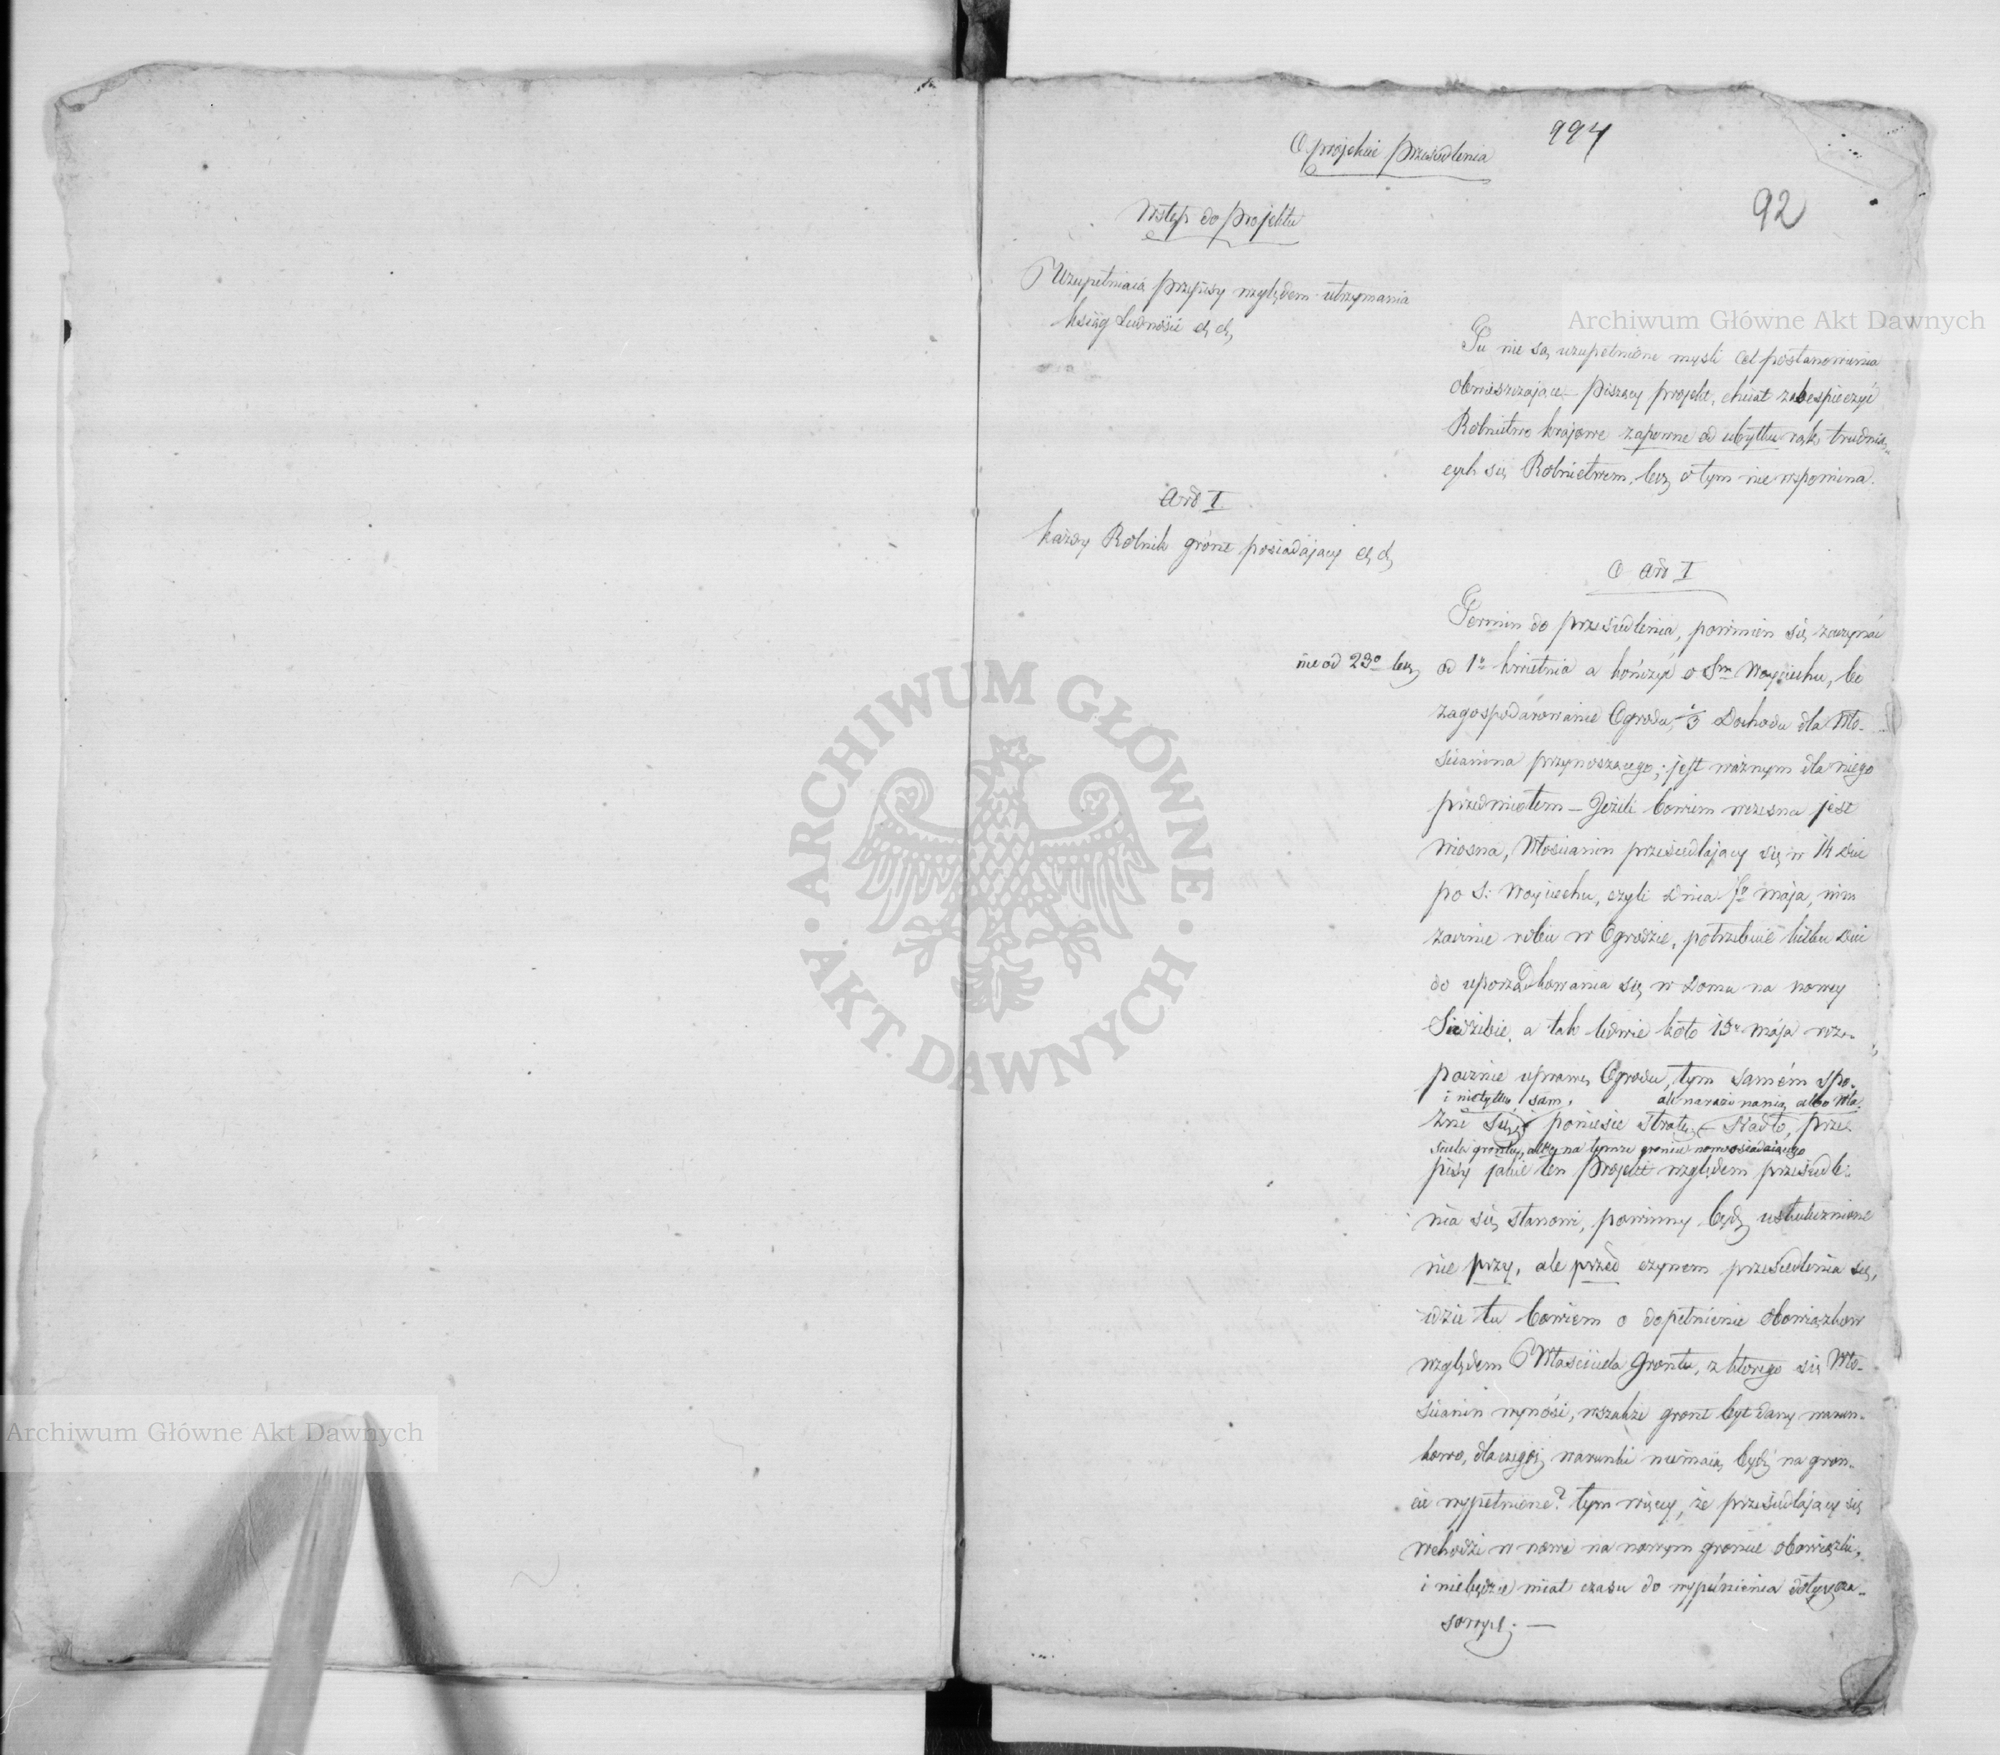 994
O projekcie przesiedlenia
92
Wstęp do projektu
Uzupełniaiąc przepisy względem utrzymania
ksiąg Ludności etc etc
Tu nie są uzupełnione myśli cel postanowienia
obwieszczające – piszący projekt, chciał zabespieczyć
Rolnictwo krajowe zapewne od ubytku rąk trudnią-
cych się Rolnictwem, lecz o tym nie wspomina.
Art I.
każdy Rolnik gront posiadający etc etc
O Art I
Termin do przesiedlenia, powinien się zaczynać
nie od 23o lecz
od 1o kwietnia a kończyć o Sm Woyciechu, bo
zagospodarowanie Ogrodu, 1/3 Dochodu dla Wło-
ścianina przynoszącego; jest ważnym dla niego
przedmiotem – Jeżeli bowiem wczesna jest
wiosna, Włościanin przesiedlający się w 14 Dni
po S: Woyciechu, czyli Dnia 7o maja, nim
zacznie robić w Ogrodzie, potrzebuie kilku Dni
do uporządkowania się w Domu na nowey
Siedzibie, a tak ledwie koło 15o maja roz-
pocznie uprawę Ogrodu, tym samém spo-
i nietylko sam, ale narazi na nią albo Wła-
źni się, i poniesie stratę – Nadto, prze-
ściciela grontu, albo na tymże groncie nowosiadaiącego
pisy jakie ten Projekt względem przesiedle-
nia się stanowi, powinny bydź uskutecznione
nie przy, ale przed czynem przesiedlenia się,
idzie tu bowiem o dopełnienie obowiązków
względem Właściciela Grontu, z którego się Wło-
ścianin wynosi, wszakże gront był dany warun-
kowo, dla czegoż warunki niemaią bydź na gron-
cie wypełnione? tym więcey, że przesiedlający się
wchodzi w nowe na nowym groncie obowiązki,
i niebędzie miał czasu do wypełnienia dotychcza-
sowych. —
Archiwum Główne Akt Dawnych
Archiwum Główne Akt Dawnych
ARCHIWUM GŁÓWNE AKT DAWNYCH